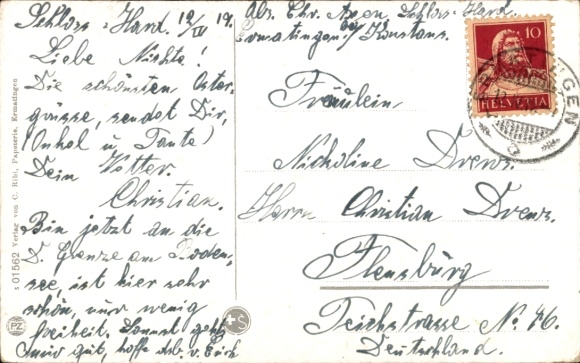 Schloss-Hard. 12/IV 19.
Liebe Nichte!
Die schönsten Oster-
grüsse, sendet Dir,
Onkel u. Tante!
Dein Vetter.
Christian.
Bin jetzt an die
D. Grenze am Boden-
see, ist hier sehr
schön, nur wenig
freiheit, Sonst geht
mir gut, hoffe dsb. v. Euch
s 01562 Verlag von C. Ribi, Papeterie, Ermatingen
PZ
Abs. Chr. Schloss-Hard.
Ermatingen bei Konstanz.
10
HELVETIA
Fräulein
Nicholine Drews.
Herrn Christian Drews.
Flensburg
Teichstrasse No. 46.
Deutschland.